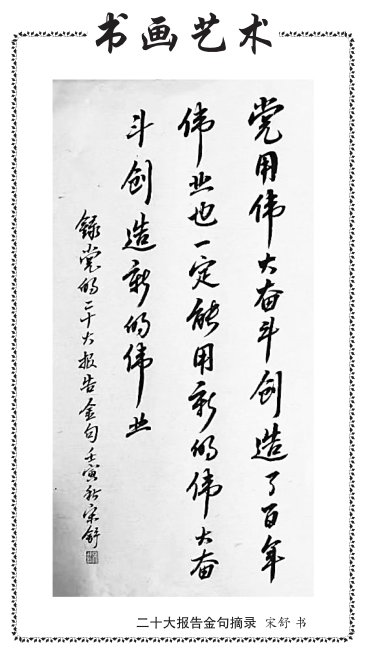 书画艺术
党用伟大奋斗创造了百年
伟业也一定能用新的伟大奋
斗创造新的伟业
录党的二十大报告金句壬寅秋宋舒
二十大报告金句摘录 宋舒 书